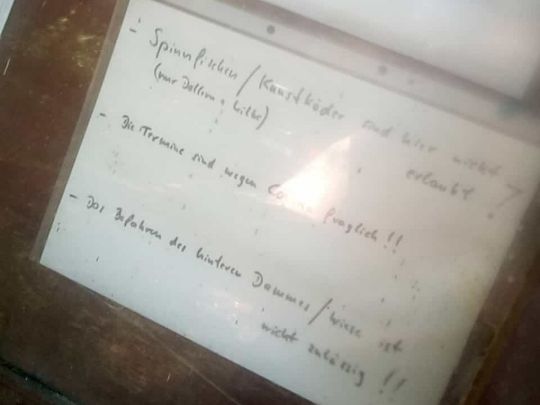 - Spinnfischen / Kunstköder sind hier nicht
erlaubt !
(nur
- Die Termine sind wegen fraglich !!
- Das Befahren des hinteren Dammes / Wiese ist
nicht zulässig !!